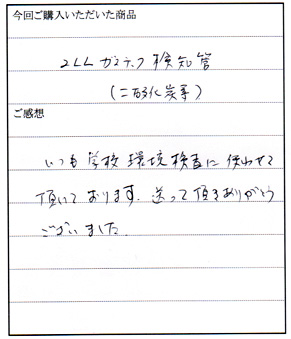 今回ご購入いただいた商品
2LL ガステック 検知管
(二酸化炭素)
ご感想
いつも学校環境検査に使わせて
頂いております。送って頂きありがとう
ございました。